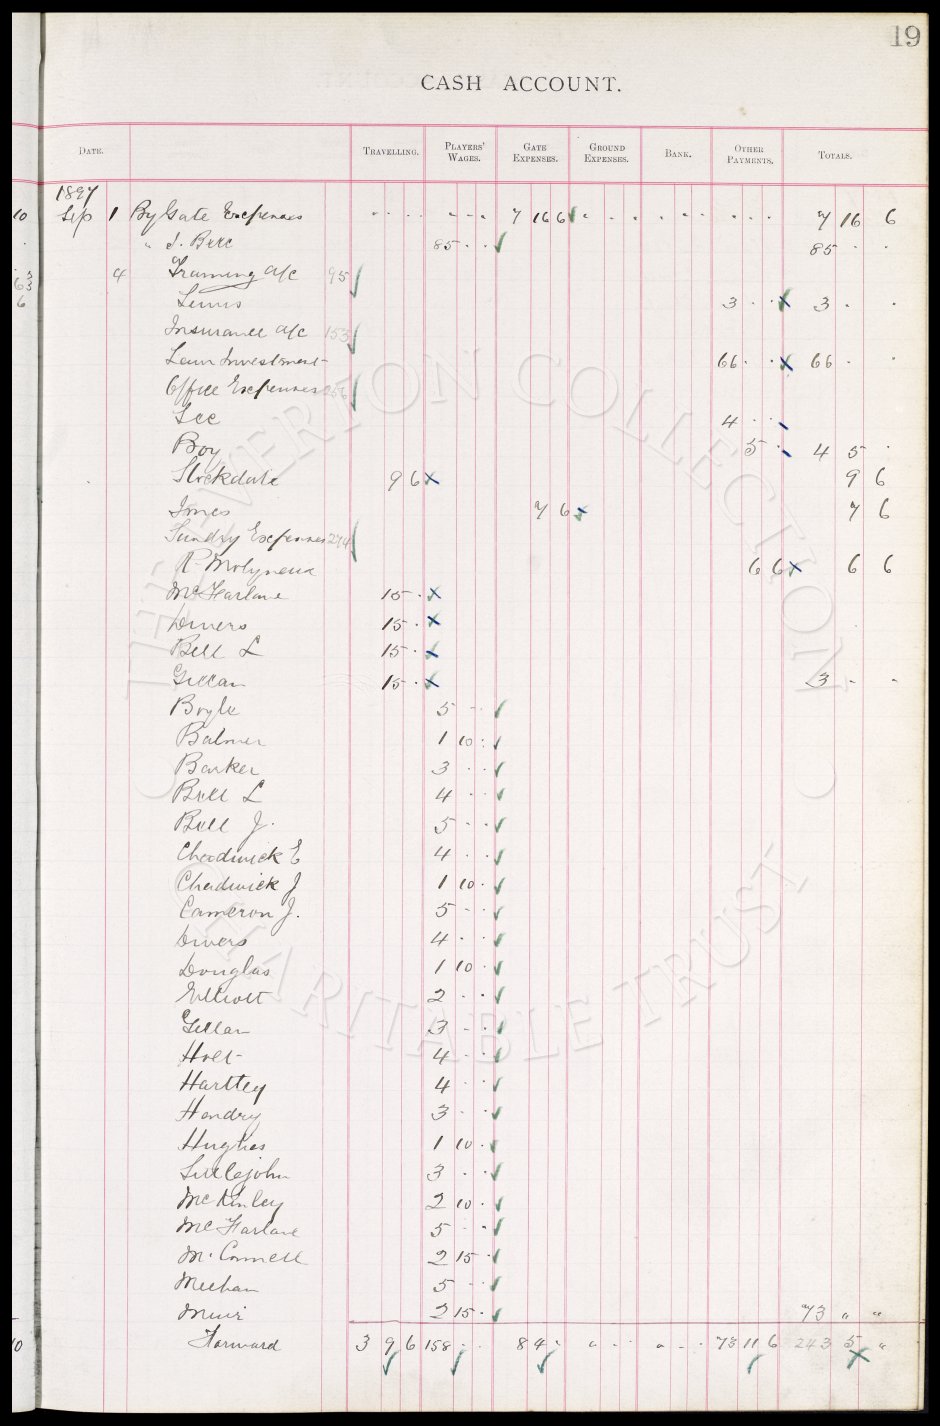 19
CASH ACCOUNT.
DATE. TRAVELLING. PLAYERS' WAGES. GATE EXPENSES. GROUND EXPENSES. BANK. OTHER PAYMENTS. TOTALS.
1897
10 Sep 1 By Gate Expenses 7 16 6 7 16 6
" J. Bell 85 - - 85 - -
4 Training a/c 95
6 Lewis 3 - - 3 - -
Insurance a/c 153
Loan Investment 66 - - 66 - -
Office Expenses 256
Lee 4 - -
Boy 5 - 4 5 -
Stockdale 9 6 9 6
Jones 7 6 7 6
Sundry Expenses 274
R Molyneux 6 6 6 6
McFarlane 15 -
Divers 15 -
Bell L 15 -
Gillan 15 - 3 - -
Boyle 5 - -
Balmer 1 10 -
Barker 3 - -
Bell L 4 - -
Bell J. 5 - -
Chadwick E 4 - -
Chadwick J 1 10 -
Cameron J. 5 - -
Divers 4 - -
Douglas 1 10 -
Elliott 2 - -
Gillan 3 - -
Holt 4 - -
Hartley 4 - -
Hendry 3 - -
Hughes 1 10 -
Littlejohn 3 - -
McKinley 2 10 -
McFarlane 5 - -
McConnell 2 15 -
Meehan 5 - -
Muir 2 15 - 73 " "
10 Forward 3 9 6 158 - - 8 4 - " - - " - - 73 11 6 243 5 "
THE EVERTON COLLECTION
CHARITABLE TRUST